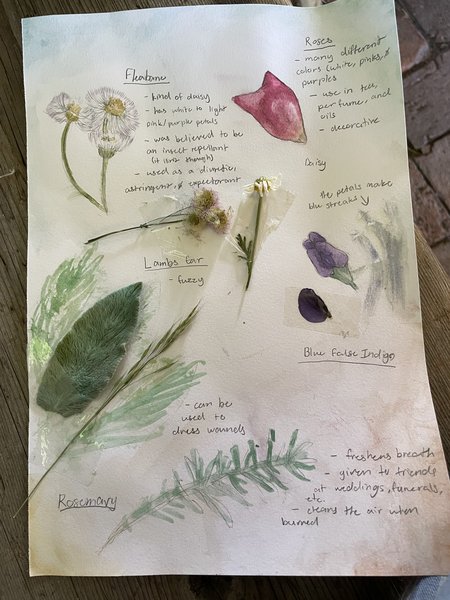 Fleabane
- kind of daisy
- has white to light
pink/purple petals
- was believed to be
an insect repellant
(it isn't though)
- used as a diuretic,
astringent, & expectorant
Roses
- many different
colors (white, pinks, &
purples
- use in tea,
perfume, and
oils
- decorative
Daisy
the petals make
blue streaks
Lambs Ear
- fuzzy
Blue False Indigo
- can be
used to
dress wounds
Rosemary
- freshens breath
- given to friends
at weddings, funerals,
etc.
- cleans the air when
burned